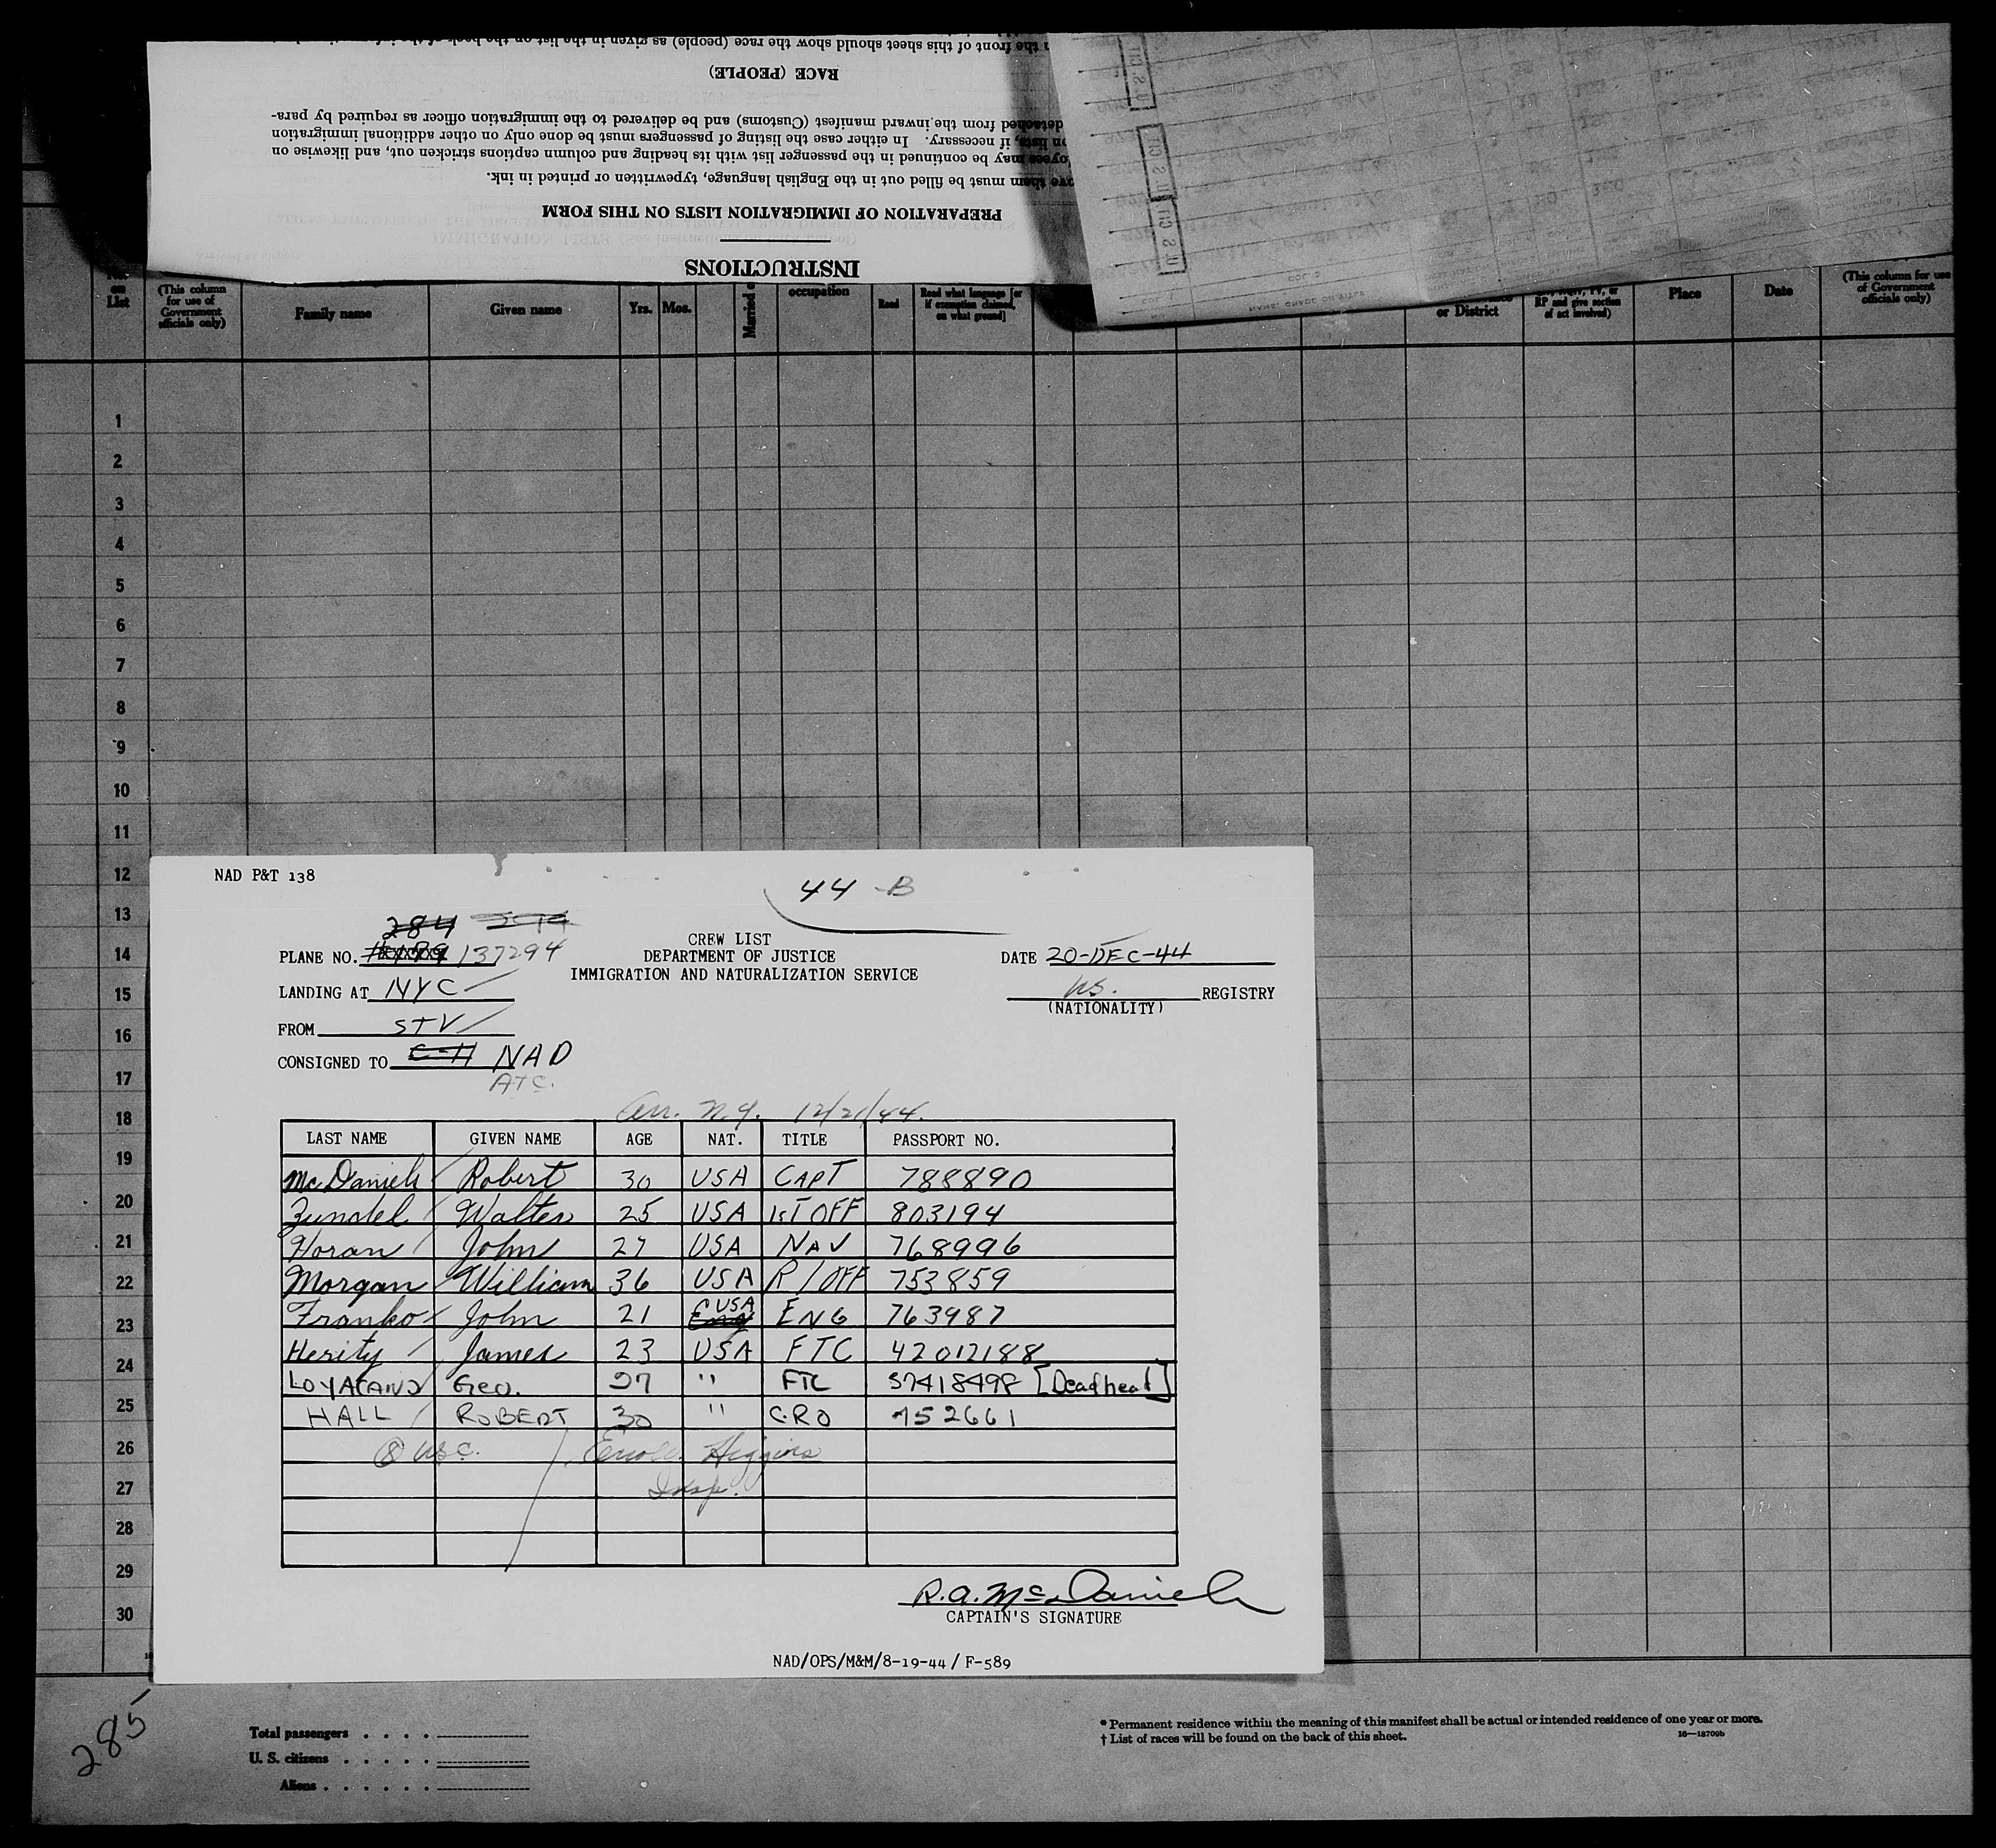 n the front of this sheet should show the race (people) as given in the list on the back of the
RACE (PEOPLE)
detached from the inward manifest (Customs) and be delivered to the immigration officer as required by para-
on lists, if necessary. In either case the listing of passengers must be done only on other additional immigration
oyees may be continued in the passenger list with its heading and column captions stricken out, and likewise on
ave them must be filled out in the English language, typewritten or printed in ink.
PREPARATION OF IMMIGRATION LISTS ON THIS FORM
INSTRUCTIONS
U. S. CIT
U. S. CIT
U. S. CIT
on List
(This column for use of Government officials only)
Family name
Given name
Yrs.
Mos.
Married o
occupation
Read
Read what language [or if exemption claimed, on what ground]
or District
RP and give section of act involved)
Place
Date
(This column for use of Government officials only)
1
2
3
4
5
6
7
8
9
10
11
12
13
14
15
16
17
18
19
20
21
22
23
24
25
26
27
28
29
30
NAD P&T 138
44 -B
284
CREW LIST
PLANE NO. 137294
DEPARTMENT OF JUSTICE
DATE 20-DEC-44
IMMIGRATION AND NATURALIZATION SERVICE
LANDING AT NYC
US. REGISTRY
(NATIONALITY)
FROM STV
CONSIGNED TO C-H NAD
ATC.
Arr. N.Y. 12/21/44.
LAST NAME GIVEN NAME AGE NAT. TITLE PASSPORT NO.
McDaniels Robert 30 USA CAPT 788890
Zundel Walter 25 USA 1ST OFF 803194
Horan John 27 USA NAV 768996
Morgan William 36 USA R/OFF 753859
Franko John 21 Eng USA ENG 763987
Herity James 23 USA FTC 42012188
LOYACANO Geo. 27 " FTC 37418498 [Deadhead]
HALL ROBERT 30 " CRO 752661
8 USC. Higgins
Insp.
R.A. McDaniels
CAPTAIN'S SIGNATURE
NAD/OPS/M&M/8-19-44 / F-589
285
Total passengers
U. S. citizens
Aliens
* Permanent residence within the meaning of this manifest shall be actual or intended residence of one year or more.
† List of races will be found on the back of this sheet.
16—18709b